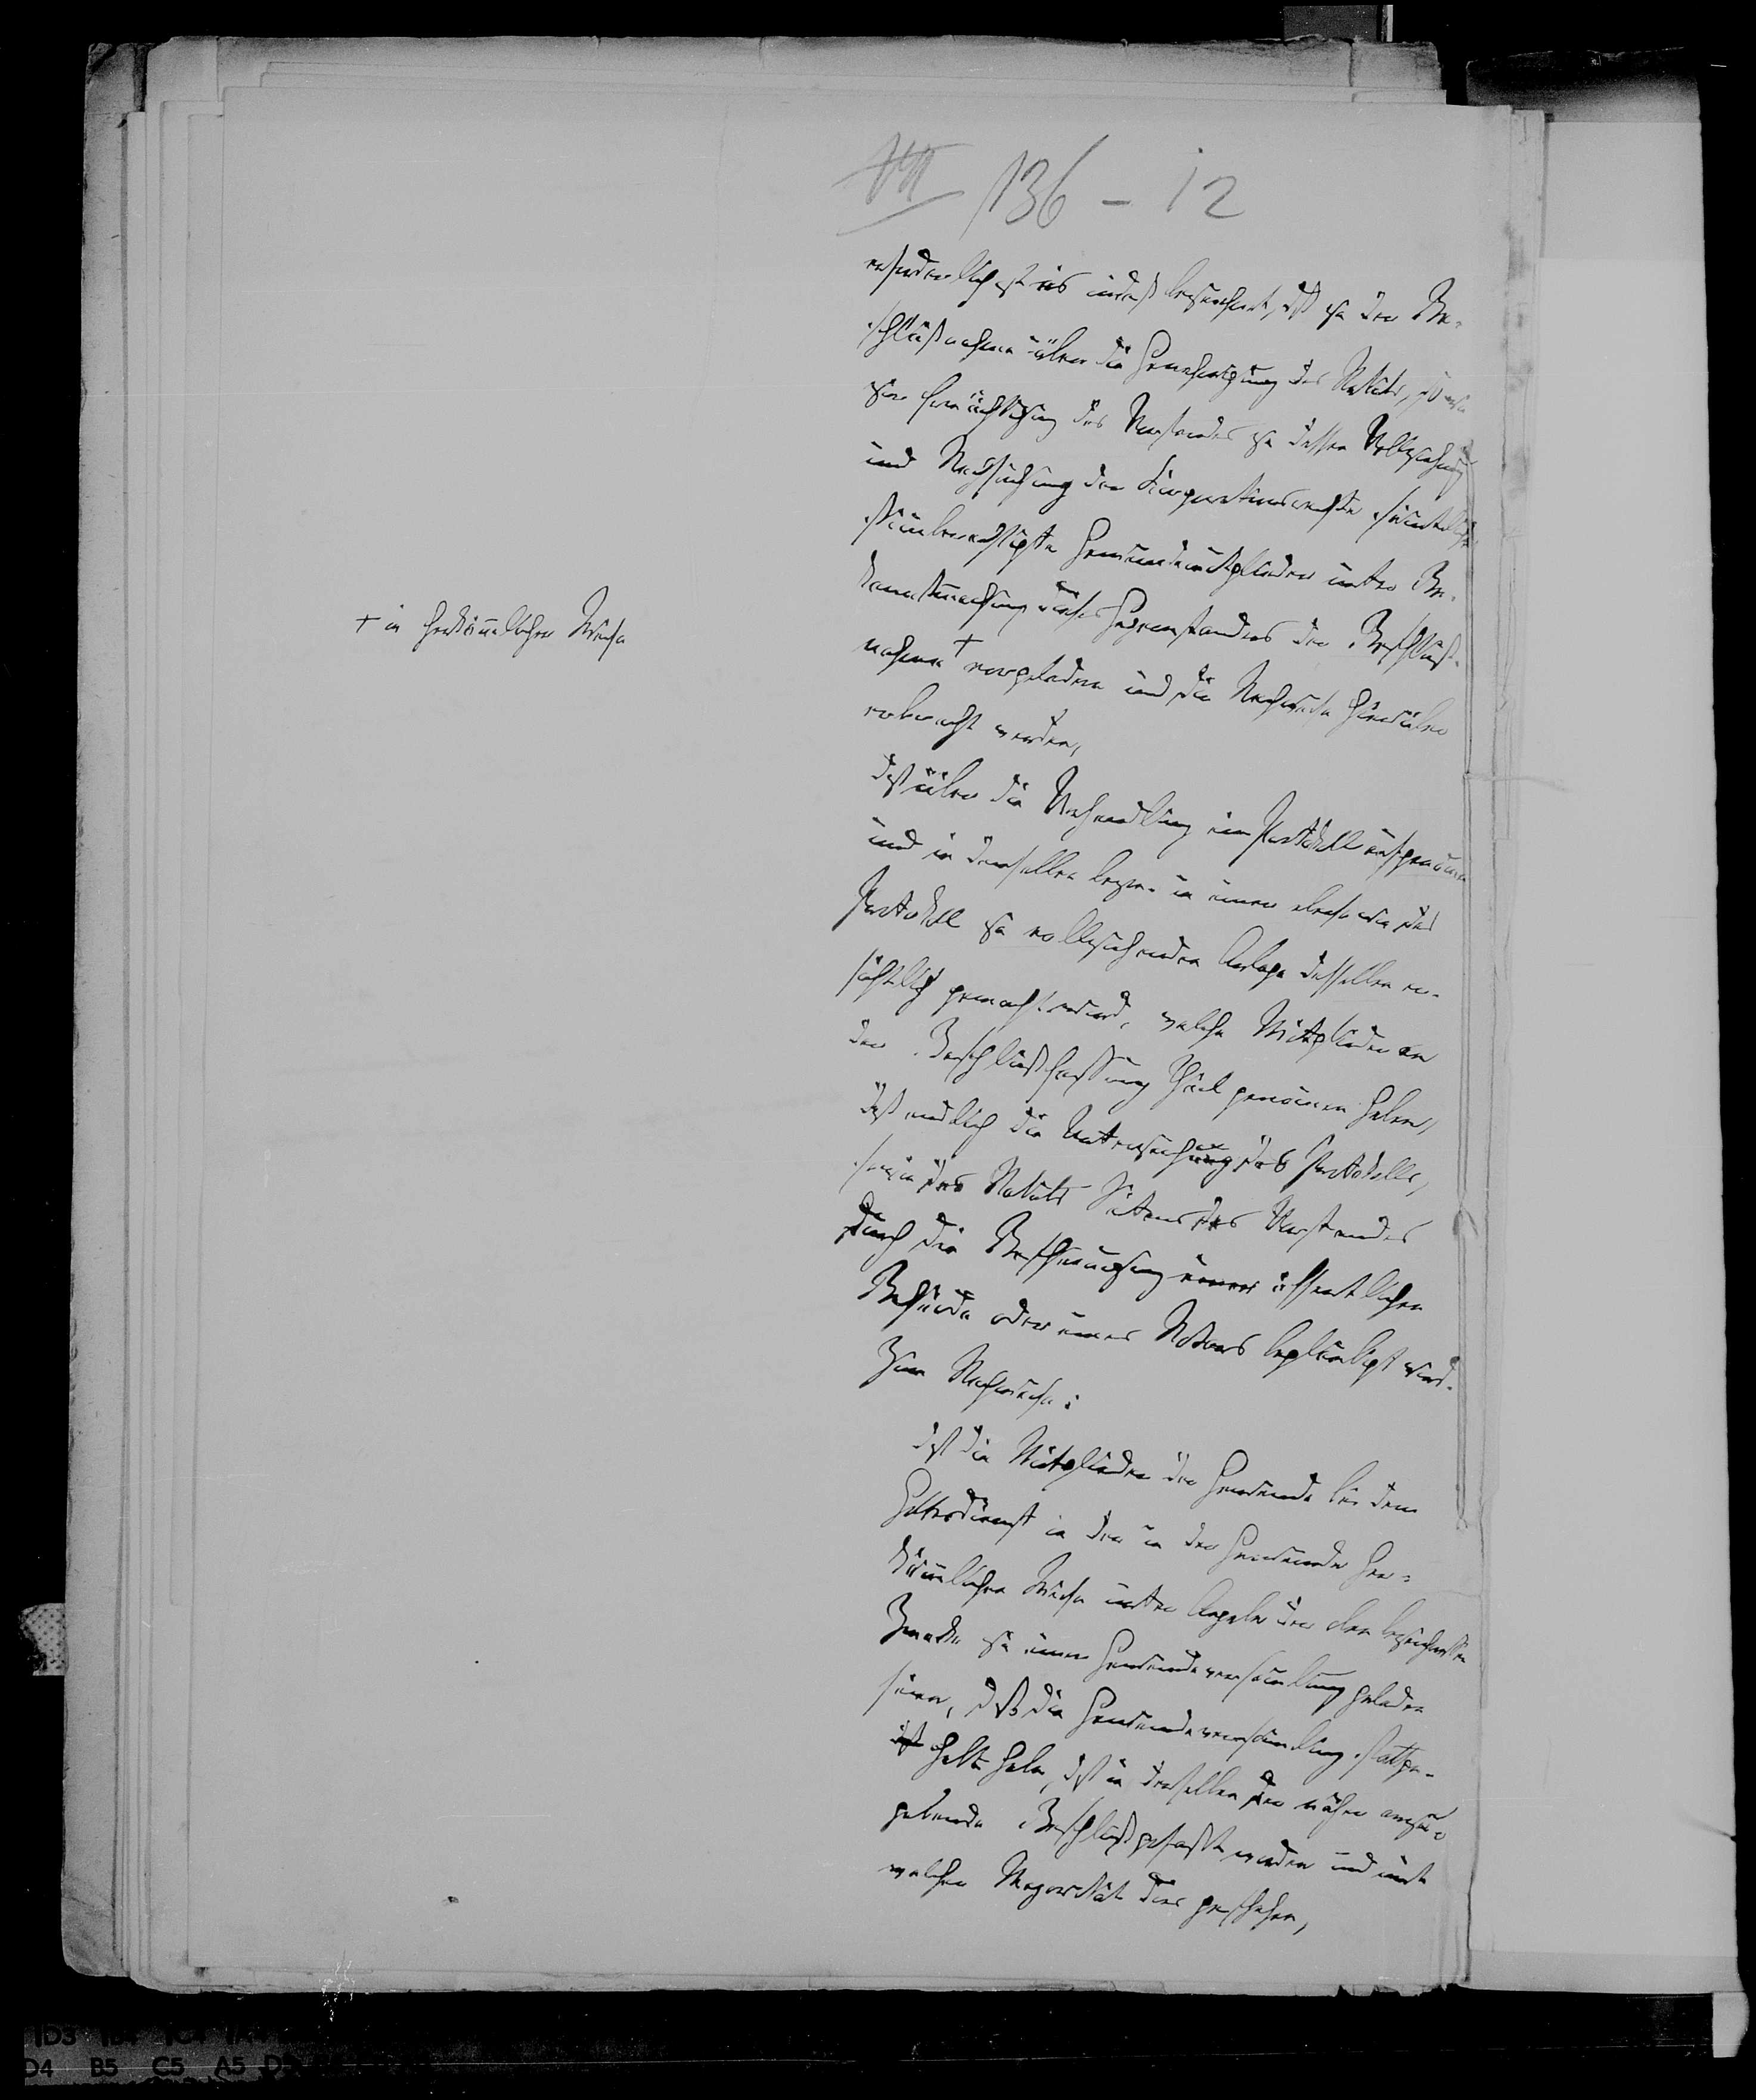 136 - 12
erforderlich ist es indeß bezeichnet, daß zu der Be-
schlußnahme über die Genehmigung des Statuts, sowie
zur Ermächtigung des Vorstandes zu dessen Vollziehung
und Nachsuchung der Korporationsrechte sämmtliche
stimmberechtigte Gemeindemitglieder unter Be-
kanntmachung dieses Gegenstandes der Beschluß-
+ in herkömmlicher Weise
nahme + vorgeladen und die Nachweise hierüber
erbracht werden,
daß über die Verhandlung ein Protokoll aufgenommen
und in demselben bezw. in einer ebenso wie das
Protokoll zu vollziehenden Anlage desselben er-
sichtlich gemacht wird, welche Mitglieder an
der Beschlußfassung Theil genommen haben,
daß endlich die Unterschrift des Protokolls,
sowie des Statuts Seitens des Vorstandes
durch die Bescheinigung einer öffentlichen
Behörde oder eines Notars beglaubigt wird.
Zum Nachweise:
daß die Mitglieder der Gemeinde bei dem
Gottesdienst in der in der Gemeinde her-
kömmlichen Weise unter Angabe der oben bezeichneten
Zwecke zu einer Gemeindeversammlung geladen
seien, daß die Gemeindeversammlung stattge-
habt habe, daß in derselben der näher anzu-
gebende Beschluß gefaßt worden und mit
welcher Majorität dies geschehen,